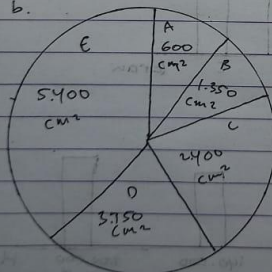 b.
A
600
cm²
B
1.350
cm²
C
2400
cm²
D
3.750
cm²
E
5.400
cm²